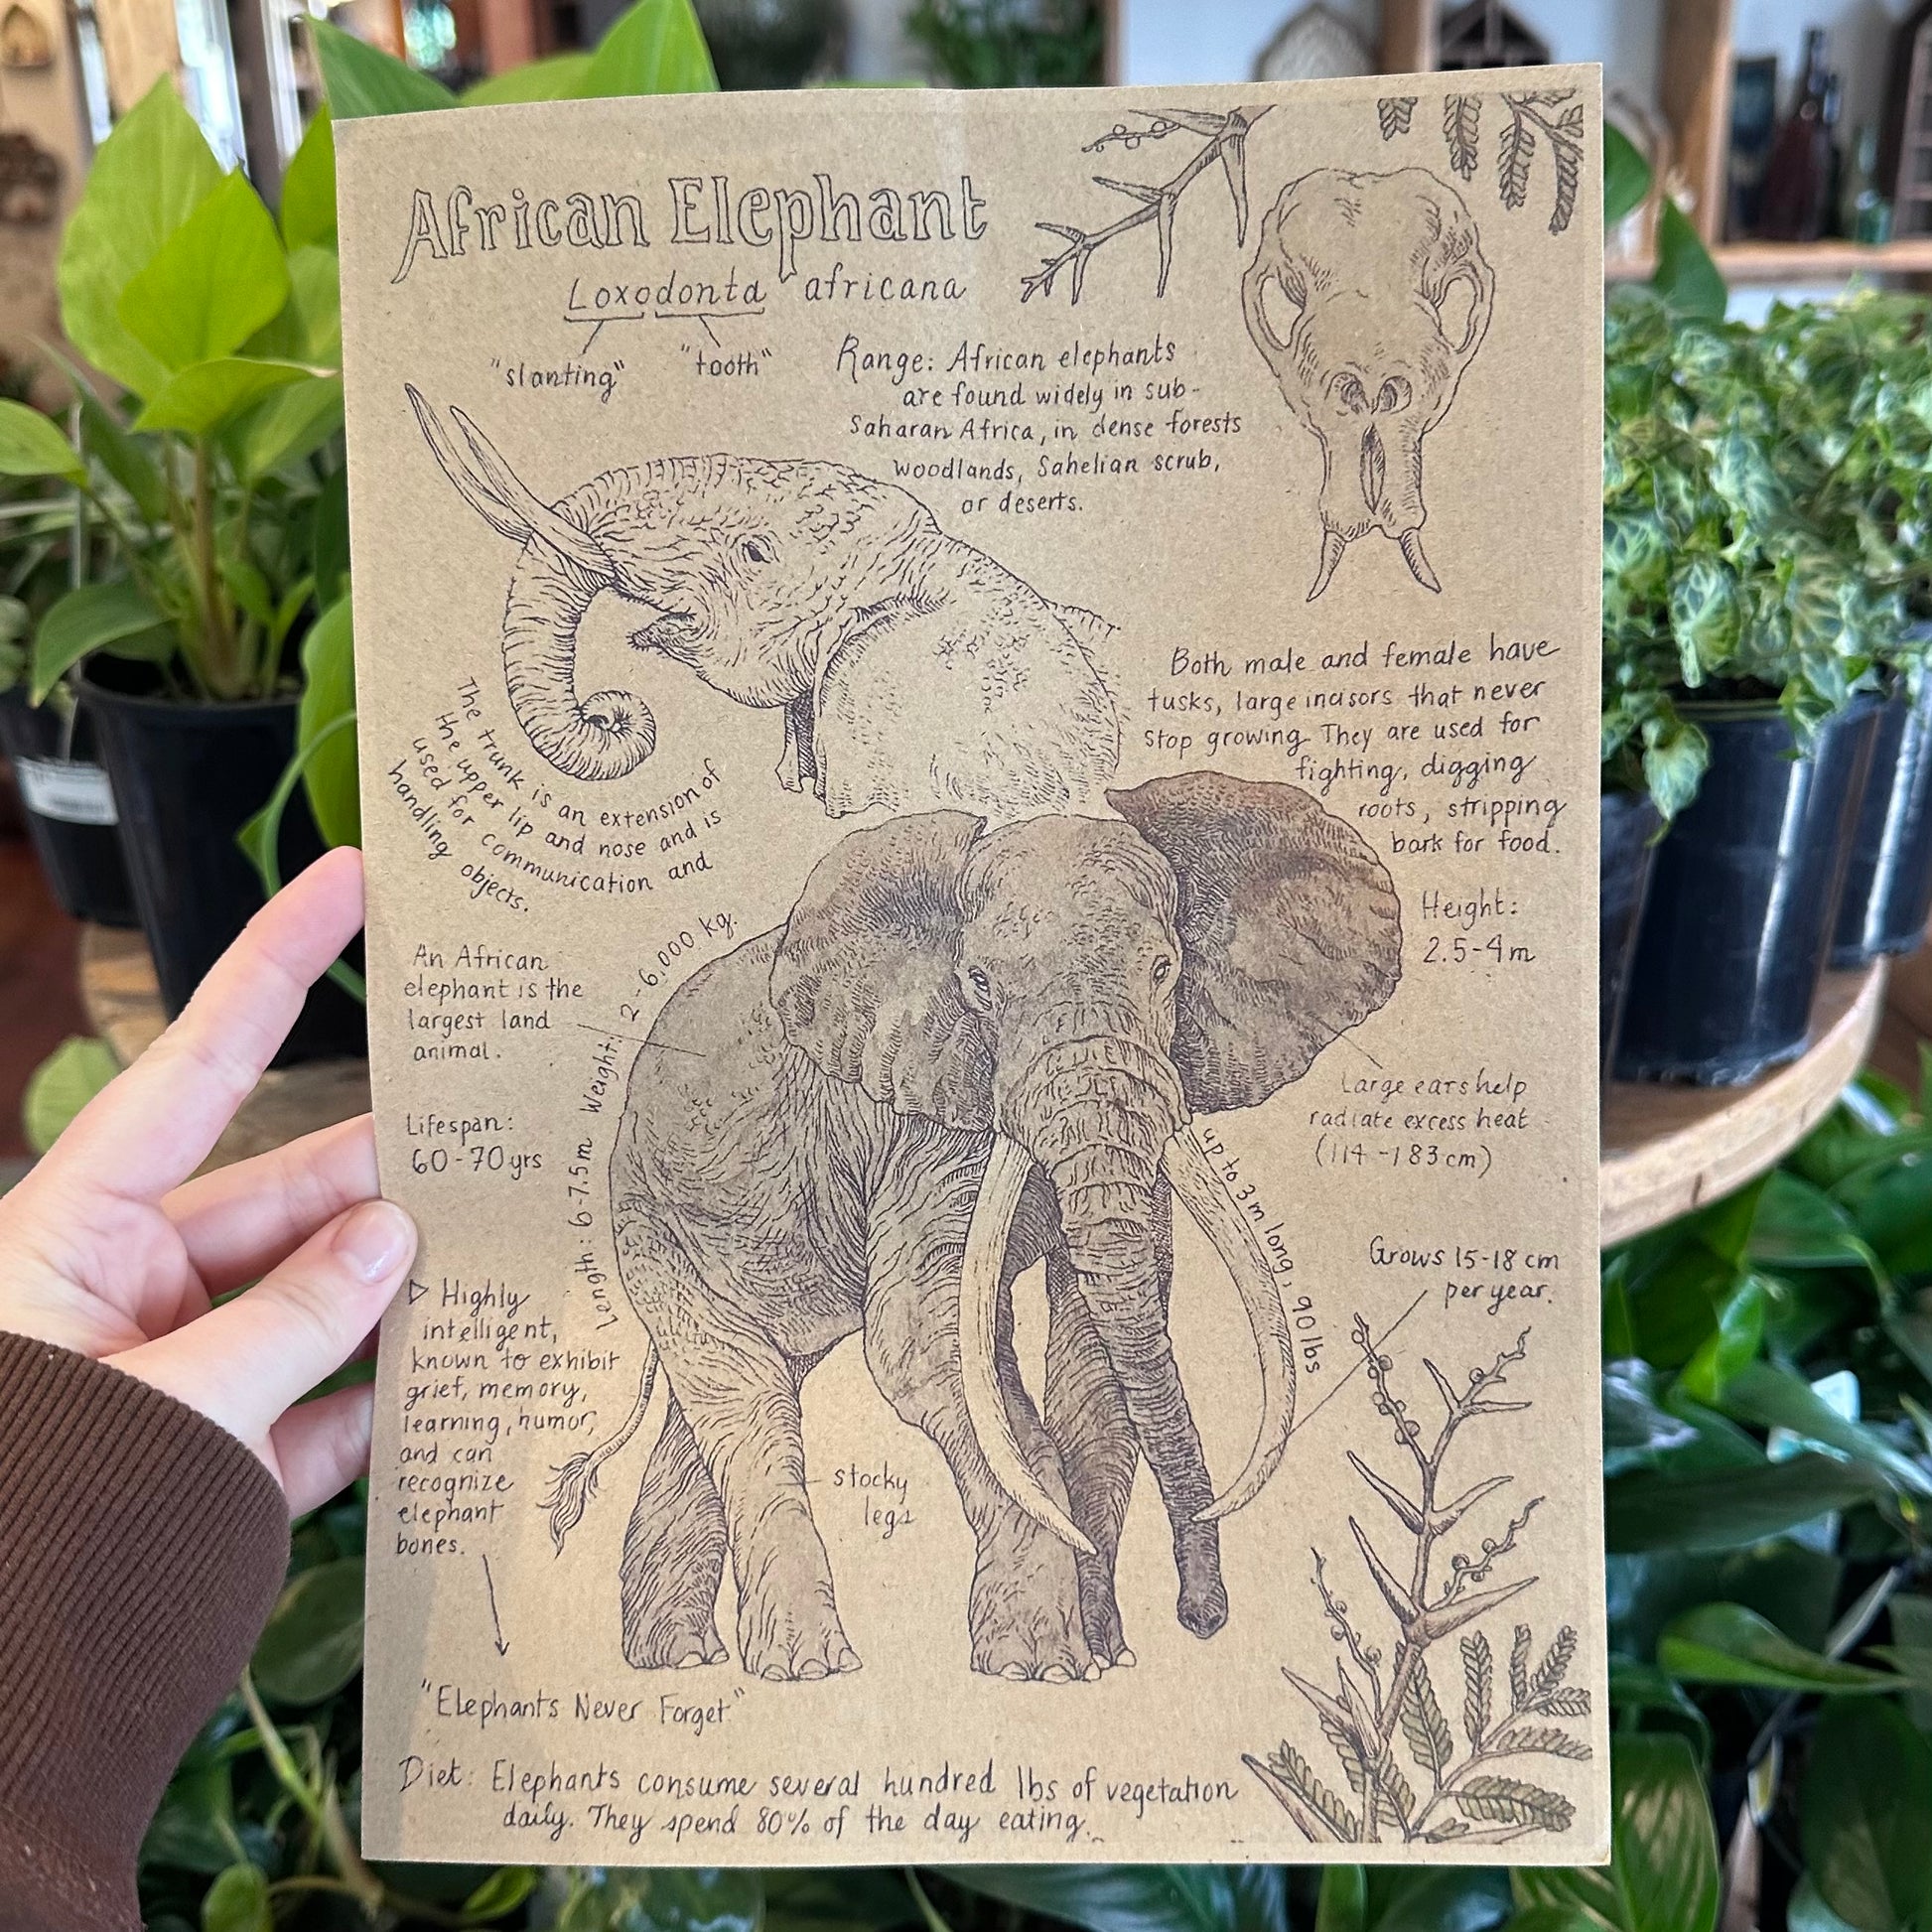 African Elephant
Loxodonta africana
"slanting" "tooth"
Range: African elephants
are found widely in sub-
Saharan Africa, in dense forests
woodlands, Sahelian scrub,
or deserts.
The trunk is an extension of
the upper lip and nose and is
used for communication and
handling objects.
Both male and female have
tusks, large incisors that never
stop growing. They are used for
fighting, digging
roots, stripping
bark for food.
Height:
2.5-4m
An African
elephant is the
largest land
animal.
Length: 6-7.5m Weight: 2-6,000 kg.
Lifespan:
60-70yrs
Large ears help
radiate excess heat
(114-183cm)
up to 3m long, 90 lbs
Grows 15-18 cm
per year.
Highly
intelligent,
known to exhibit
grief, memory,
learning, humor,
and can
recognize
elephant
bones.
stocky
legs
"Elephants Never Forget"
Diet: Elephants consume several hundred lbs of vegetation
daily. They spend 80% of the day eating.